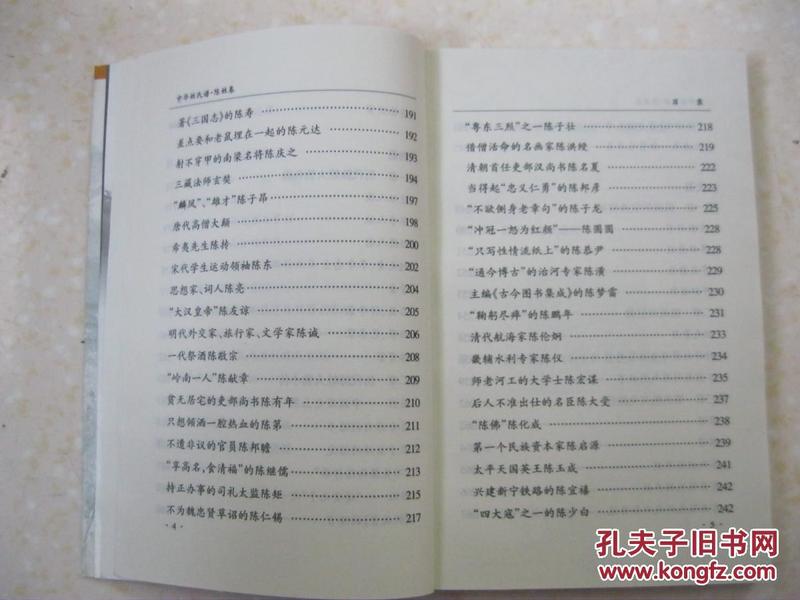 中华姓氏谱·陈姓卷
著《三国志》的陈寿 191
差点要和老鼠埋在一起的陈元达 192
射不穿甲的南梁名将陈庆之 193
三藏法师玄奘 194
“麟凤”、“雄才”陈子昂 197
唐代高僧大颠 198
希夷先生陈抟 200
宋代学生运动领袖陈东 202
思想家、词人陈亮 204
“大汉皇帝”陈友谅 205
明代外交家、旅行家、文学家陈诚 206
一代祭酒陈敬宗 208
“岭南一人”陈献章 209
贫无居宅的吏部尚书陈有年 210
只想倾洒一腔热血的陈第 211
不遭非议的官员陈邦瞻 212
“享高名,食清福”的陈继儒 213
持正办事的司礼太监陈矩 215
不为魏忠贤草诏的陈仁锡 217
· 4 ·
目 录
“粤东三烈”之一陈子壮 218
借僧活命的名画家陈洪绶 219
清朝首任吏部汉尚书陈名夏 222
当得起“忠义仁勇”的陈邦彦 223
“不欲侧身老章句”的陈子龙 225
“冲冠一怒为红颜”——陈圆圆 228
“只写性情流纸上”的陈恭尹 228
“通今博古”的治河专家陈潢 229
主编《古今图书集成》的陈梦雷 230
“鞠躬尽瘁”的陈鹏年 231
清代航海家陈伦炯 233
畿辅水利专家陈仪 234
师老河工的大学士陈宏谋 235
后人不准出任的名臣陈大受 237
“陈佛”陈化成 238
第一个民族资本家陈启源 239
太平天国英王陈玉成 241
兴建新宁铁路的陈宜禧 242
“四大寇”之一的陈少白 242
· 5 ·
孔夫子旧书网
www.kongfz.com